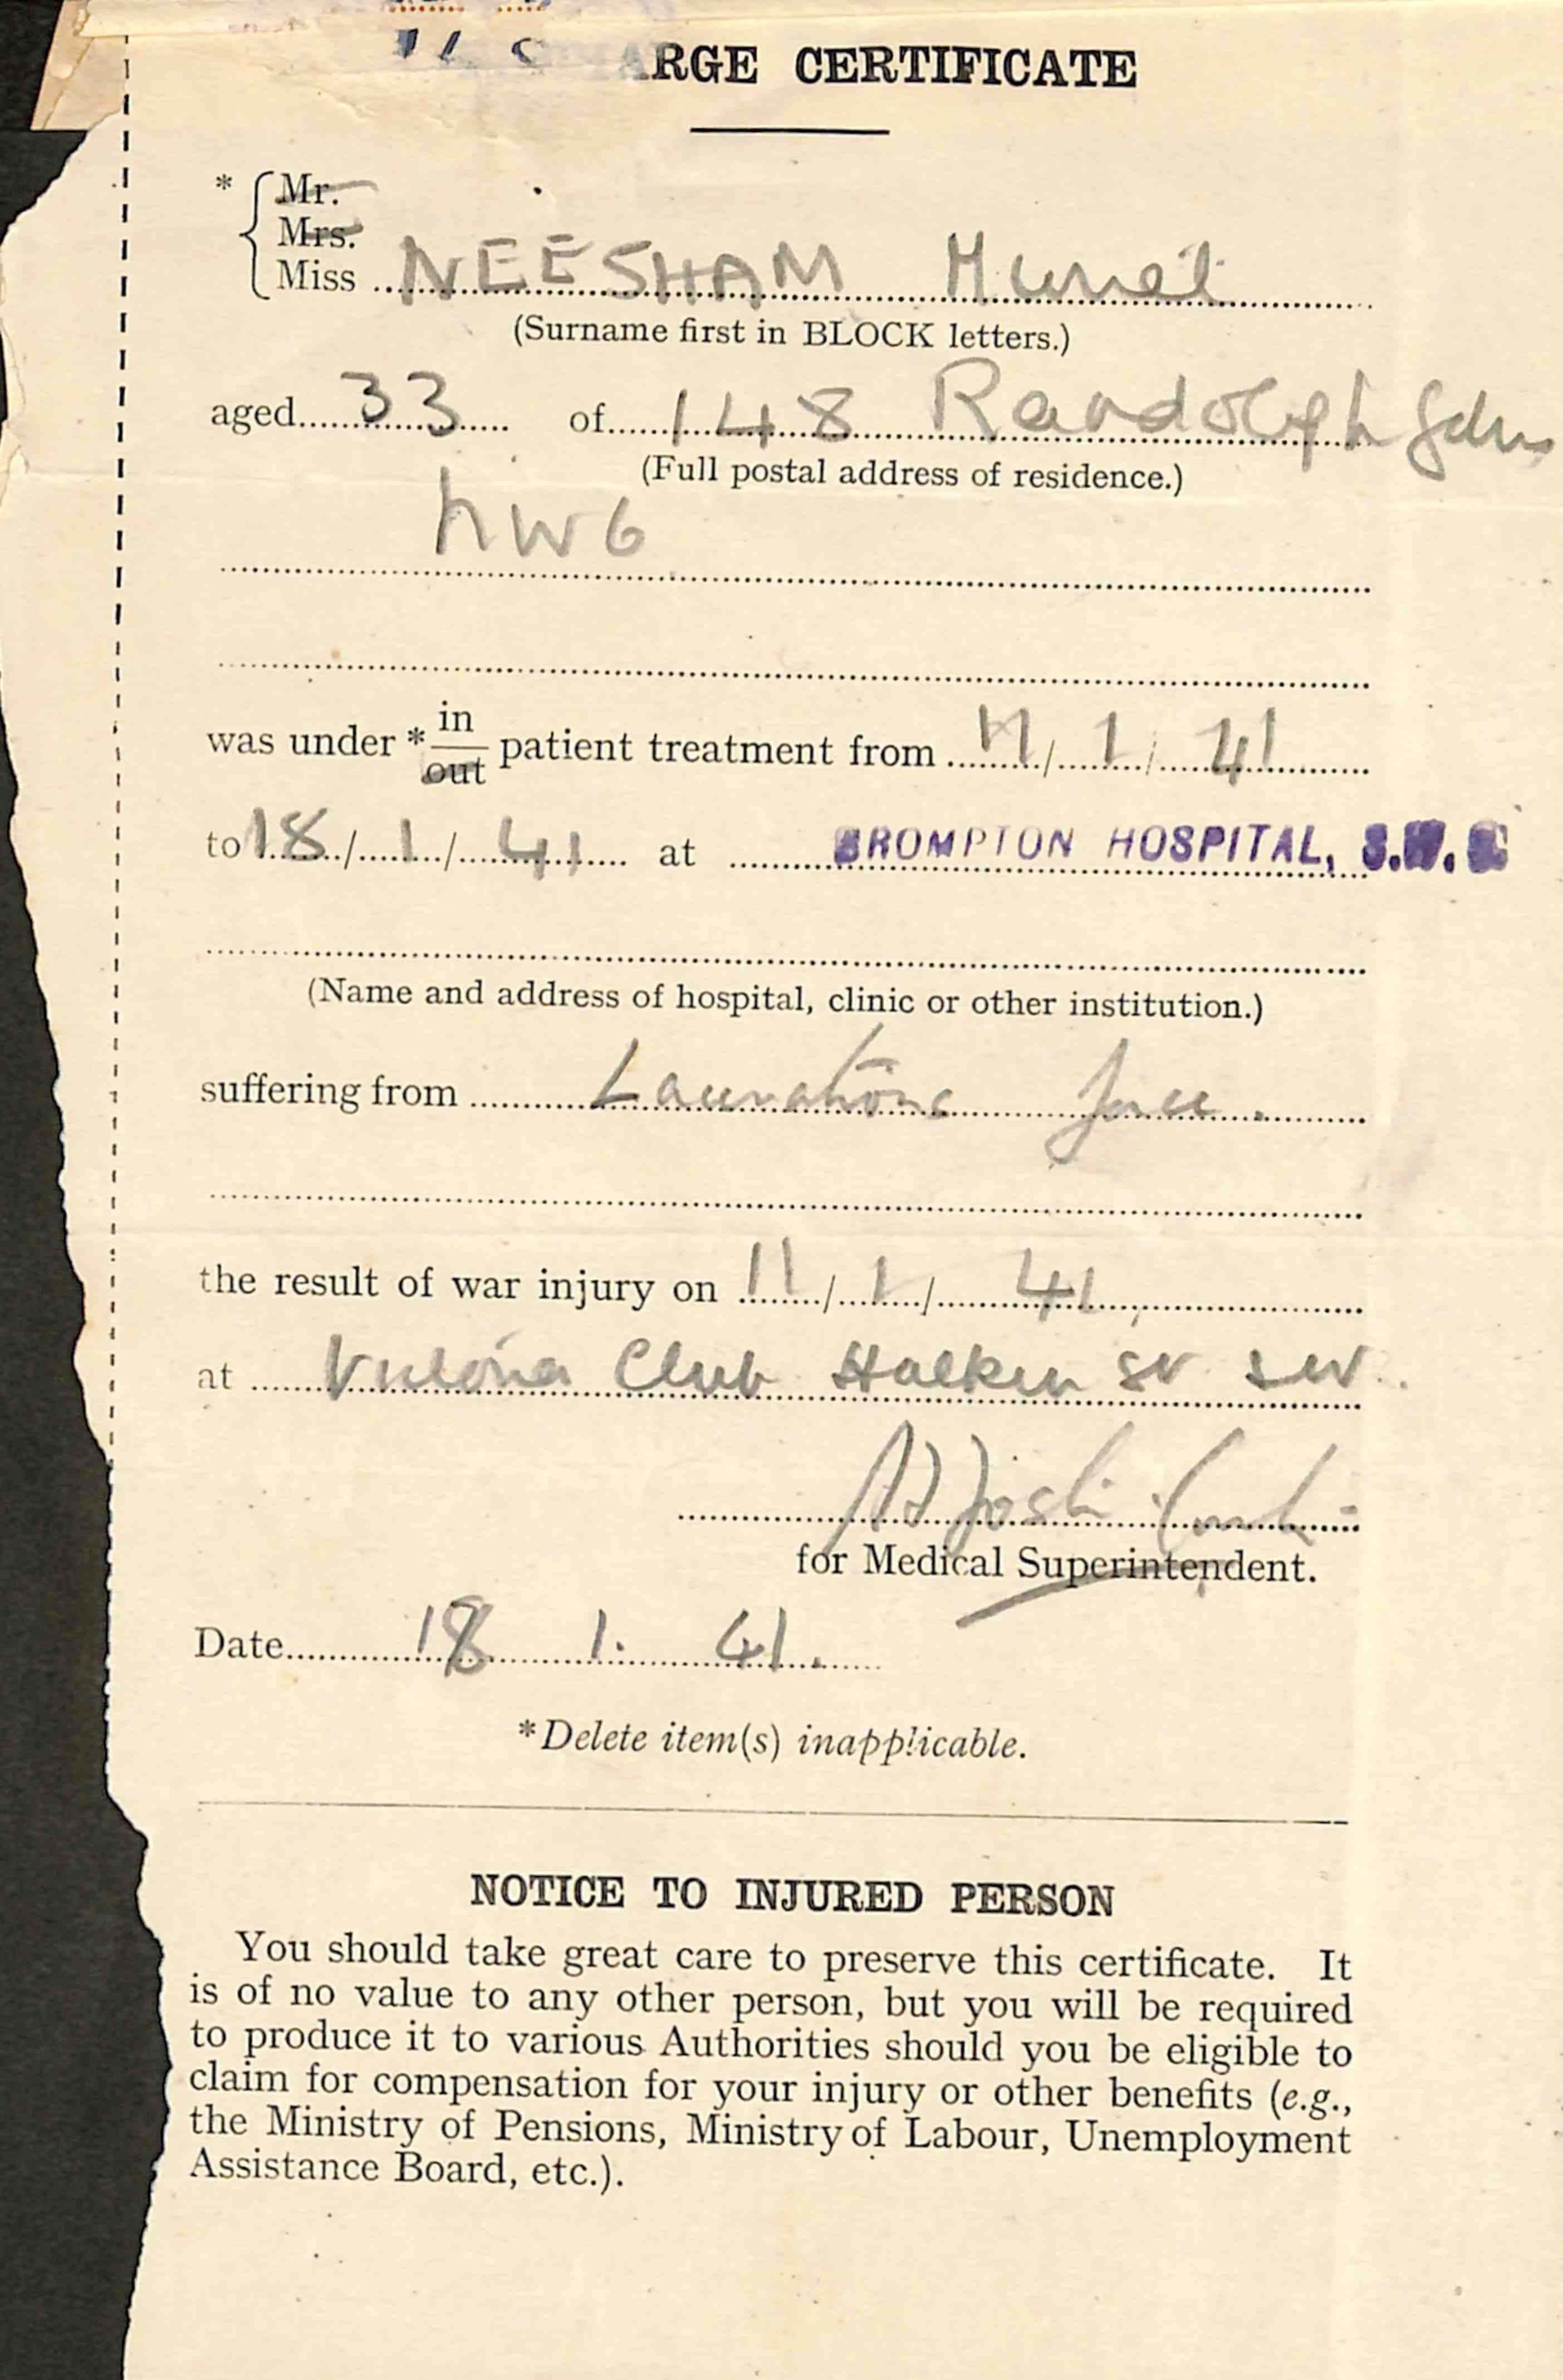 ARGE CERTIFICATE
* Mr.
Mrs.
Miss NEESHAM Muriel
(Surname first in BLOCK letters.)
aged 33 of 148 Randolph Gdns
(Full postal address of residence.)
NW6
was under * in
out patient treatment from 11/1/41
to 18/1/41 at BROMPTON HOSPITAL, S.W.
(Name and address of hospital, clinic or other institution.)
suffering from Lacerations face.
the result of war injury on 11/1/41
at Victoria Club Halkin St SW.
for Medical Superintendent.
Date 18 1. 41.
*Delete item(s) inapplicable.
NOTICE TO INJURED PERSON
You should take great care to preserve this certificate. It
is of no value to any other person, but you will be required
to produce it to various Authorities should you be eligible to
claim for compensation for your injury or other benefits (e.g.,
the Ministry of Pensions, Ministry of Labour, Unemployment
Assistance Board, etc.).